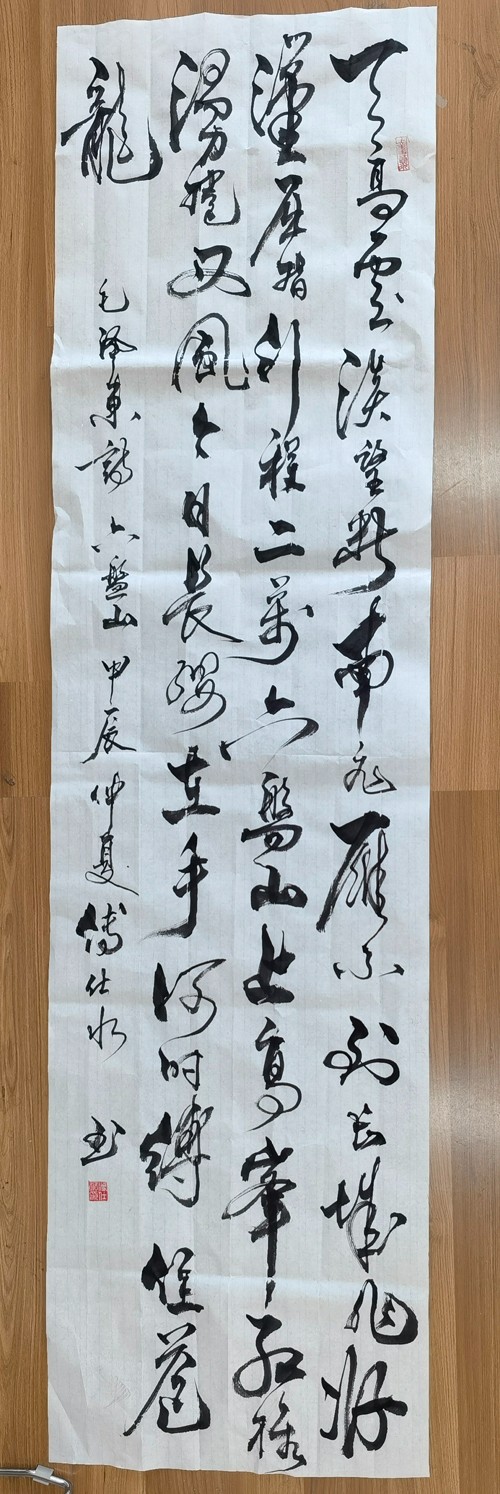 天高雲淡望斷南飛雁不到長城非好
漢屈指行程二萬六盤山上高峯紅旗
漫捲西風今日長纓在手何時縛住蒼
龍
毛澤東詩六盤山甲辰仲夏傅仕水書